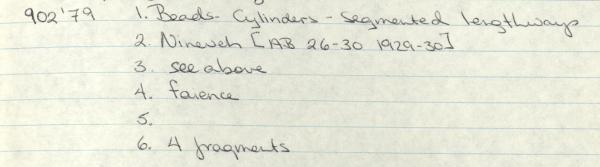 902'79 1. Beads - Cylinders - segmented lengthways
2. Nineveh [AB 26-30 1929-30]
3. see above
4. faience
5.
6. 4 fragments